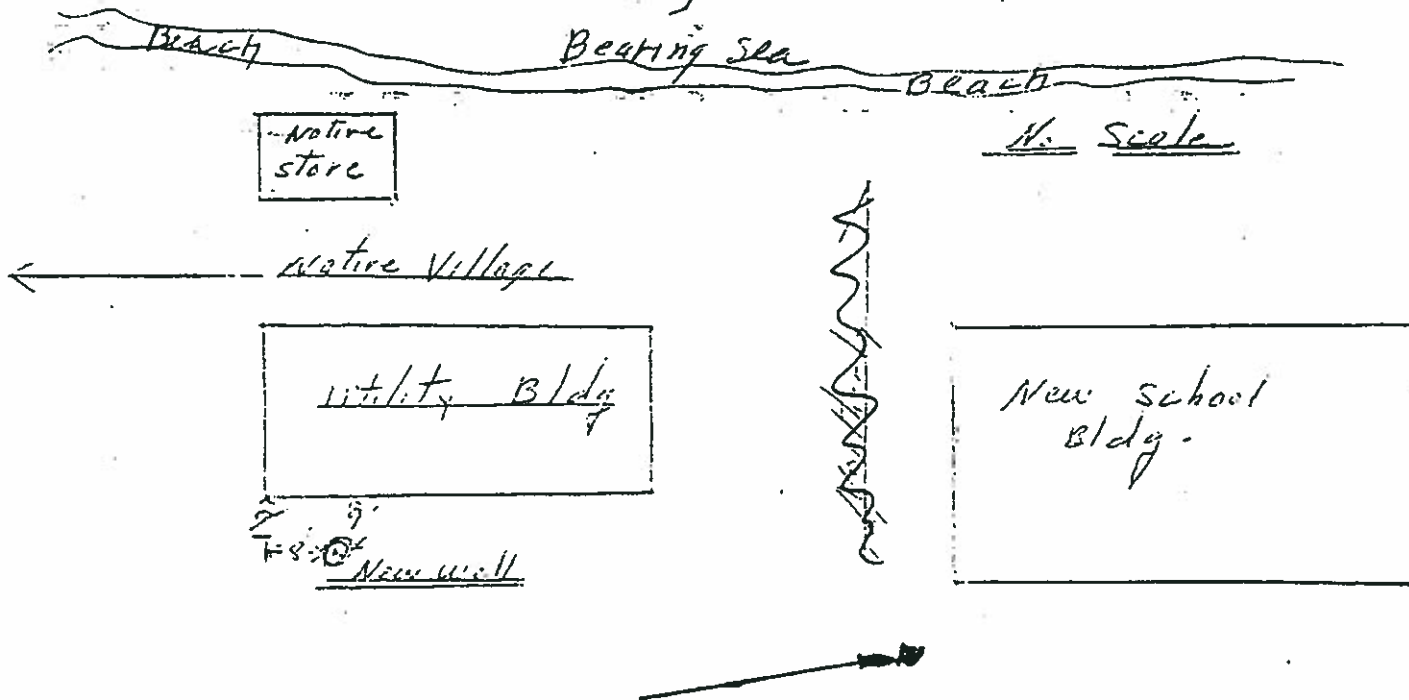 Bearing Sea
Beach
Beach
Native
store
No Scale
Native Village
Utility Bldg
New School
Bldg.
9'
8'
New well